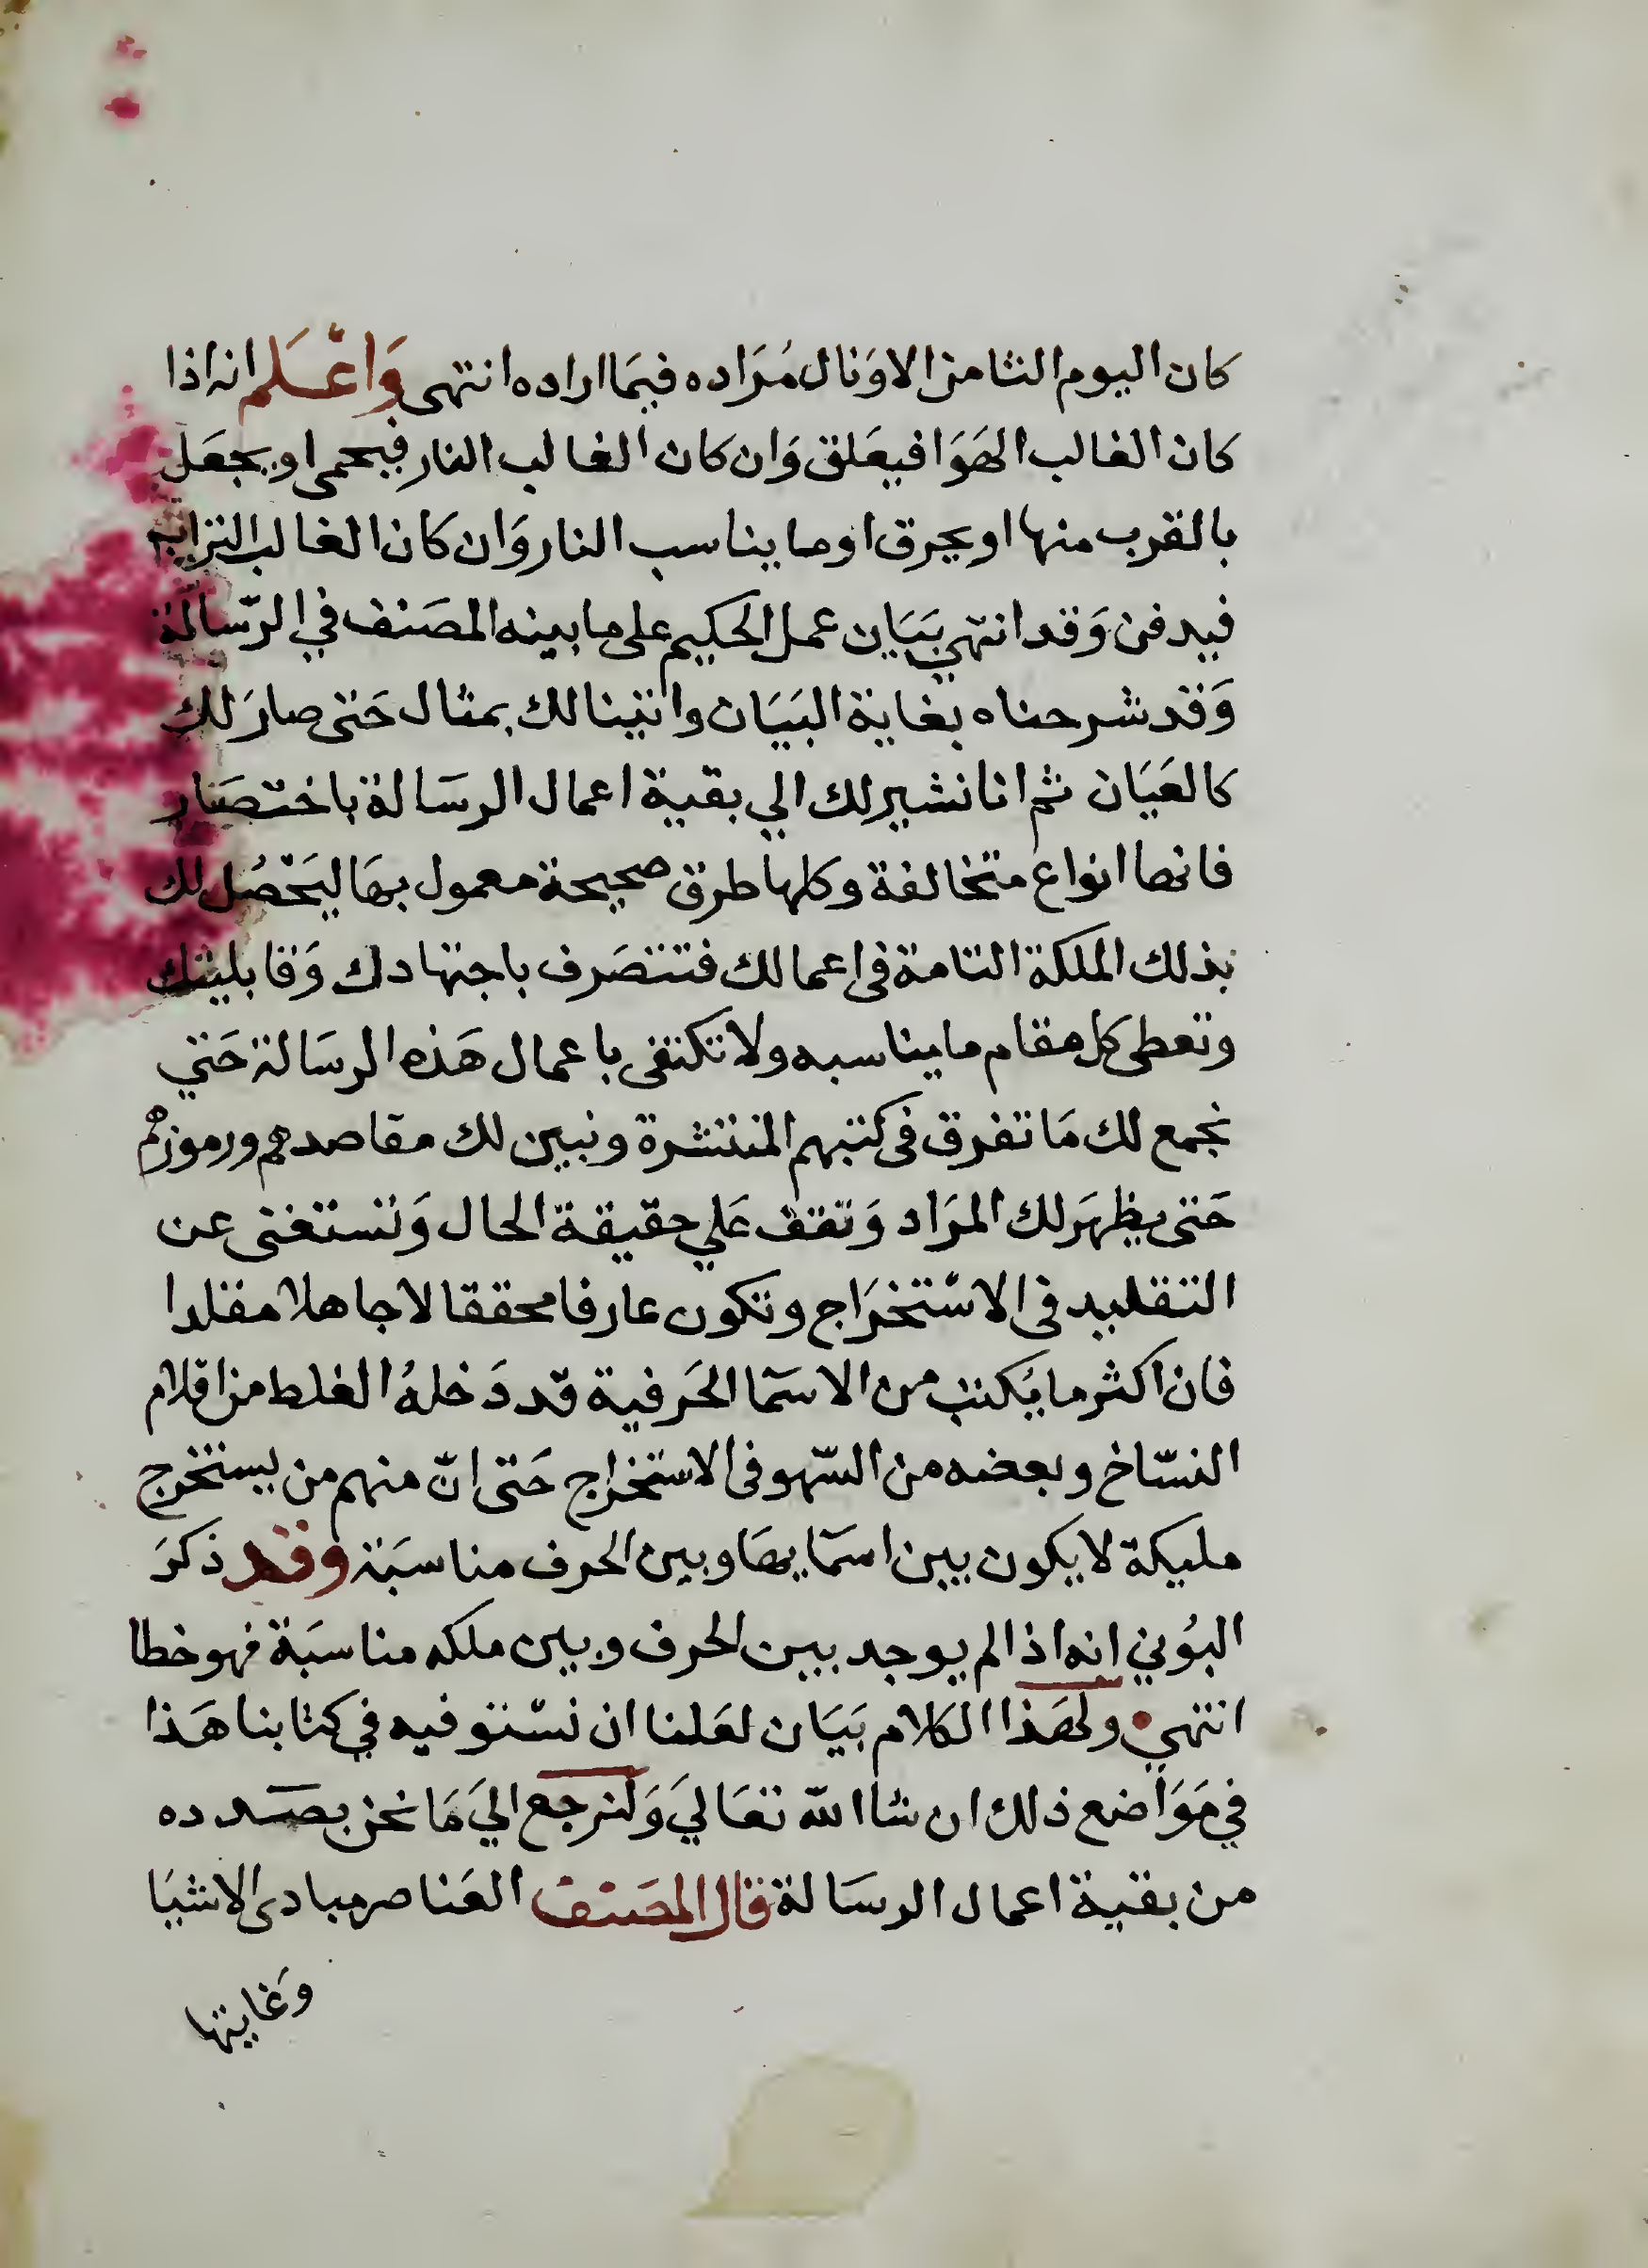 كان اليوم الثامن الا ونال مُرَاده فيمَا اراده انتهى وَاعْلَم انه اذا
كان الغالب الهَوَا فيعَلق وَان كان الغالب النار فيحمى او يجعَل
بالقرب منها او يحرق او ما يناسب النار وَان كان الغالب التراب
فيدفن وَقد انتهي بَيَان عمل الحكيم على ما بينه المصَنف في الرّسالة
وَقد شرحناه بغاية البَيَان واتينا لك بمثال حَتى صارَ لك
كالعَيَان ثم انا نشير لك الي بقية اعمال الرسَالة باختصَار
فانها انواع متخالفة وكلها طرق صحيحة معمول بهَا ليَحْصُل لك
بذلك الملكة التامة فى اعمالك فتتصَرف باجتهادك وَقابليتك
وتعطى كل مقام ما يناسبه ولا تكتفى باعمال هَذه الرسَالة حَتي
نجمع لك مَا تفرق فى كتبهم المنتشرة ونبين لك مقاصدهم ورموزهم
حَتى يظهَر لك المرَاد وَتقف عَلي حقيقة الحال وَتستغنى عن
التقليد فى الاسْتخرَاج وتكون عارفا محققا لا جاهلا مقلدا
فان اكثر ما يُكتب من الاسَما الحَرفية قد دَخلهُ الغلط من اقلام
النسّاخ وبعضه من السّهو فى الاستخراج حَتى انّ منهم من يستخرج
مليكة لا يكون بين اسمَايهَا وبين الحرف مناسبَة وقد ذكرَ
البُوني انه اذا لم يوجد بين الحرف وبين ملكه مناسَبَة فهو خطا
انتهي ولهَذا الكلام بَيَان لعَلنا ان نسْتوفيه في كتابنا هَذا
في مَوَاضع ذلك ان شا الله تعَاليَ وَلنرجع اليَ مَا نحن بصَدده
من بقية اعمال الرسَالة قال المصَنف العَناصر مبادى الاشيَا
وَغايتها